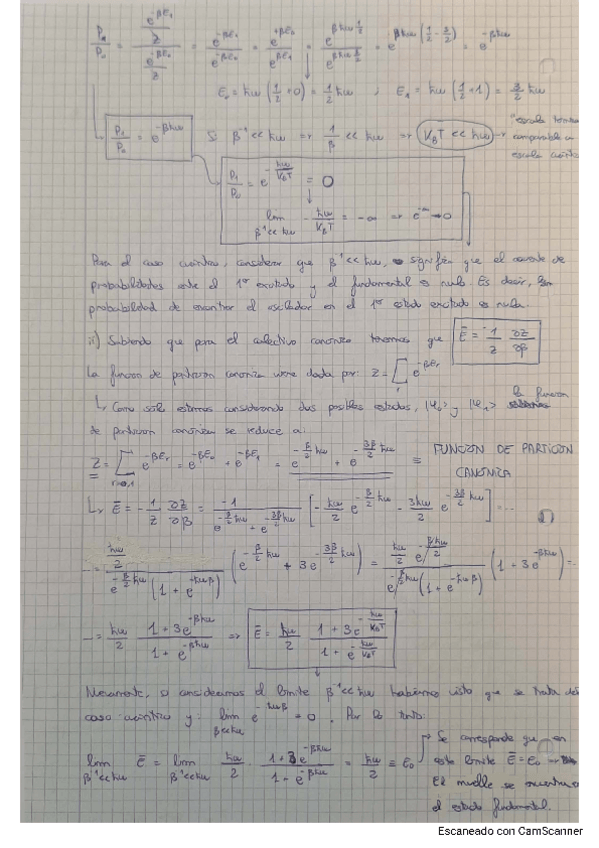 P₁/P₀ = (e^{-βE₁}/Z)/(e^{-βE₀}/Z) = e^{-βE₁}/e^{-βE₀} = e^{βE₀}/e^{βE₁} = e^{βħω 1/2}/e^{βħω 3/2} = e^{βħω(1/2 - 3/2)} = e^{-βħω}
E₀ = ħω (1/2 + 0) = 1/2 ħω ; E₁ = ħω (1/2 + 1) = 3/2 ħω
P₁/P₀ = e^{-βħω} Si β⁻¹ << ħω → 1/β << ħω → K_B T << ħω → "escala
comparable a
escala
P₁/P₀ = e^{-ħω/K_B T} = 0
lim β⁻¹<<ħω - ħω/K_B T = -∞ → e^{-∞} → 0
Para el caso cuántico, considerar que β⁻¹ << ħω, significa que el cociente de
probabilidades entre el 1º excitado y el fundamental es nulo. Es decir, la
probabilidad de encontrar el oscilador en el 1º estado excitado es nula.
ii) Sabiendo que para el colectivo canónico tenemos que Ē = -1/Z ∂Z/∂β
La función de partición canónica viene dada por: Z = ∑_r e^{-βE_r}
↳ Como sólo estamos considerando dos posibles estados, |φ₀> y |φ₁> la función
de partición canónica se reduce a:
Z = ∑_{r=0,1} e^{-βE_r} = e^{-βE₀} + e^{-βE₁} = e^{-β/2 ħω} + e^{-3β/2 ħω} ≡ FUNCIÓN DE PARTICIÓN
CANÓNICA
↳ Ē = -1/Z ∂Z/∂β = -1/(e^{-β/2 ħω} + e^{-3β/2 ħω}) [-ħω/2 e^{-β/2 ħω} - 3ħω/2 e^{-3β/2 ħω}] ...
... = (ħω/2)/(e^{-β/2 ħω} (1 + e^{-ħωβ})) (e^{-β/2 ħω} + 3e^{-3β/2 ħω}) = (ħω/2 e^{-βħω/2})/(e^{-β/2 ħω}(1 + e^{-ħωβ})) (1 + 3e^{-βħω}) = ...
... = ħω/2 (1 + 3e^{-βħω})/(1 + e^{-βħω}) ⇒ Ē = ħω/2 (1 + 3e^{-ħω/K_B T})/(1 + e^{-ħω/K_B T})
Nuevamente, si consideramos el límite β⁻¹ << ħω habíamos visto que se trata del
caso cuántico y: lim β⁻¹<<ħω e^{-ħωβ} = 0. Por lo tanto:
lim β⁻¹<<ħω Ē = lim β⁻¹<<ħω ħω/2 · (1 + 3e^{-βħω})/(1 + e^{-βħω}) = ħω/2 ≡ E₀
Se corresponde que en
este límite Ē = E₀
El muelle se encuentra
el estado fundamental.
Escaneado con CamScanner